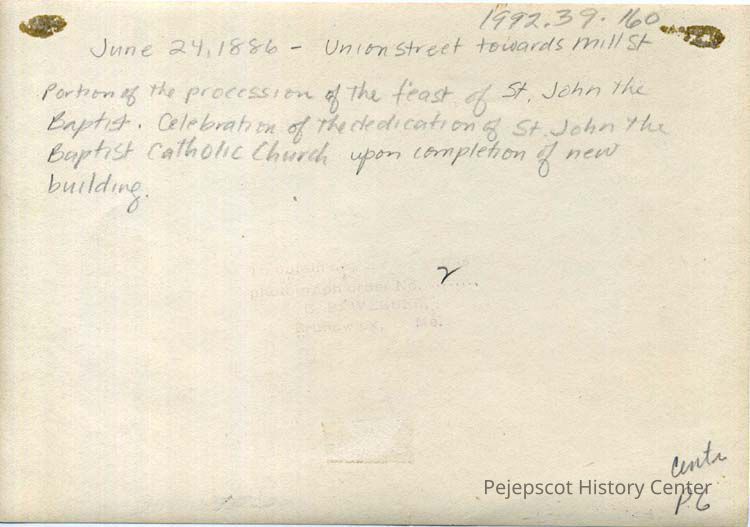 1992.39.160
June 24, 1886 - Union street towards Mill St
Portion of the procession of the feast of St. John the
Baptist. Celebration of the dedication of St. John the
Baptist Catholic Church upon completion of new
building.
2
photograph order No.
Brunswick, Me.
Pejepscot History Center
P.6